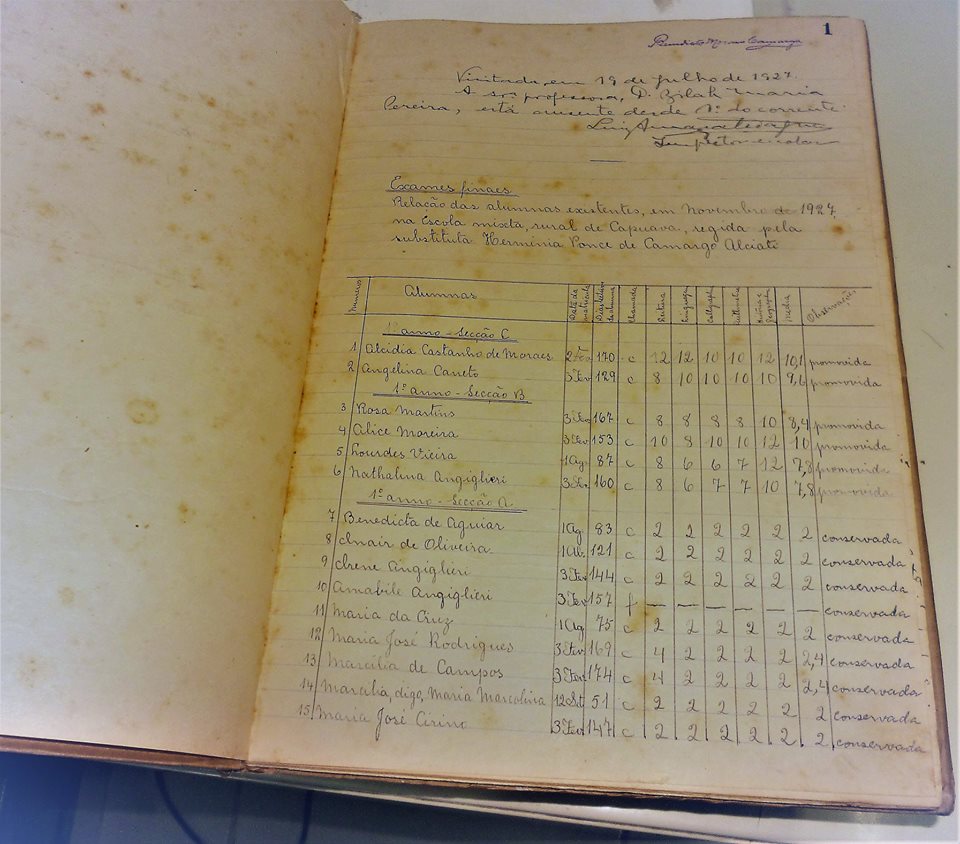 1
Benedicto Moraes Camargo
Visitada, em 19 de julho de 1927.
A sra professora, D. Zilah Maria
Pereira, está ausente desde 1º do corrente.
Luiz
Inspector escolar
Exames finaes
Relação das alumnas existentes, em Novembro de 1927,
na Escola mixta, rural de Capuava, regida pela
substituta Herminia Ponce de Camargo Alciati
Numeros Alumnas Data da matricula Chamada Leitura Linguagem Calligraphia Arithmetica Geographia Média Observações
1º anno - Secção C
1 Alcidia Castanho de Moraes 2 Fev 170 c 12 12 10 10 12 10,1 promovida
2 Angelina Caneto 3 Fev 129 c 8 10 10 10 10 9,6 promovida
1º anno - Secção B
3 Rosa Martins 3 Fev 167 c 8 8 8 8 10 8,4 promovida
4 Alice Moreira 3 Fev 153 c 10 8 10 10 12 10 promovida
5 Lourdes Vieira 1 Ag 87 c 8 6 6 7 12 7,8 promovida
6 Nathalina Angiglieri 3 Fev 160 c 8 6 7 7 10 7,8 promovida
1º anno - Secção A
7 Benedicta de Aguiar 1 Ag 83 c 2 2 2 2 2 2 conservada
8 Anair de Oliveira 1 Ab. 121 c 2 2 2 2 2 2 conservada
9 Irene Angiglieri 3 Fev 144 c 2 2 2 2 2 2 conservada
10 Amabile Angiglieri 3 Fev 157 f — — — — — — conservada
11 Maria da Cruz 1 Ag 75 c 2 2 2 2 2 2 conservada
12 Maria José Rodrigues 3 Fev. 169 c 4 2 2 2 2 2,4 conservada
13 Marcilia de Campos 3 Fev 174 c 4 2 2 2 2 2,4 conservada
14 Marcilia, digo, Maria Marcolina 12 St 51 c 2 2 2 2 2 2 conservada
15 Maria José Cirino 3 Fev. 147 c 2 2 2 2 2 2 conservada